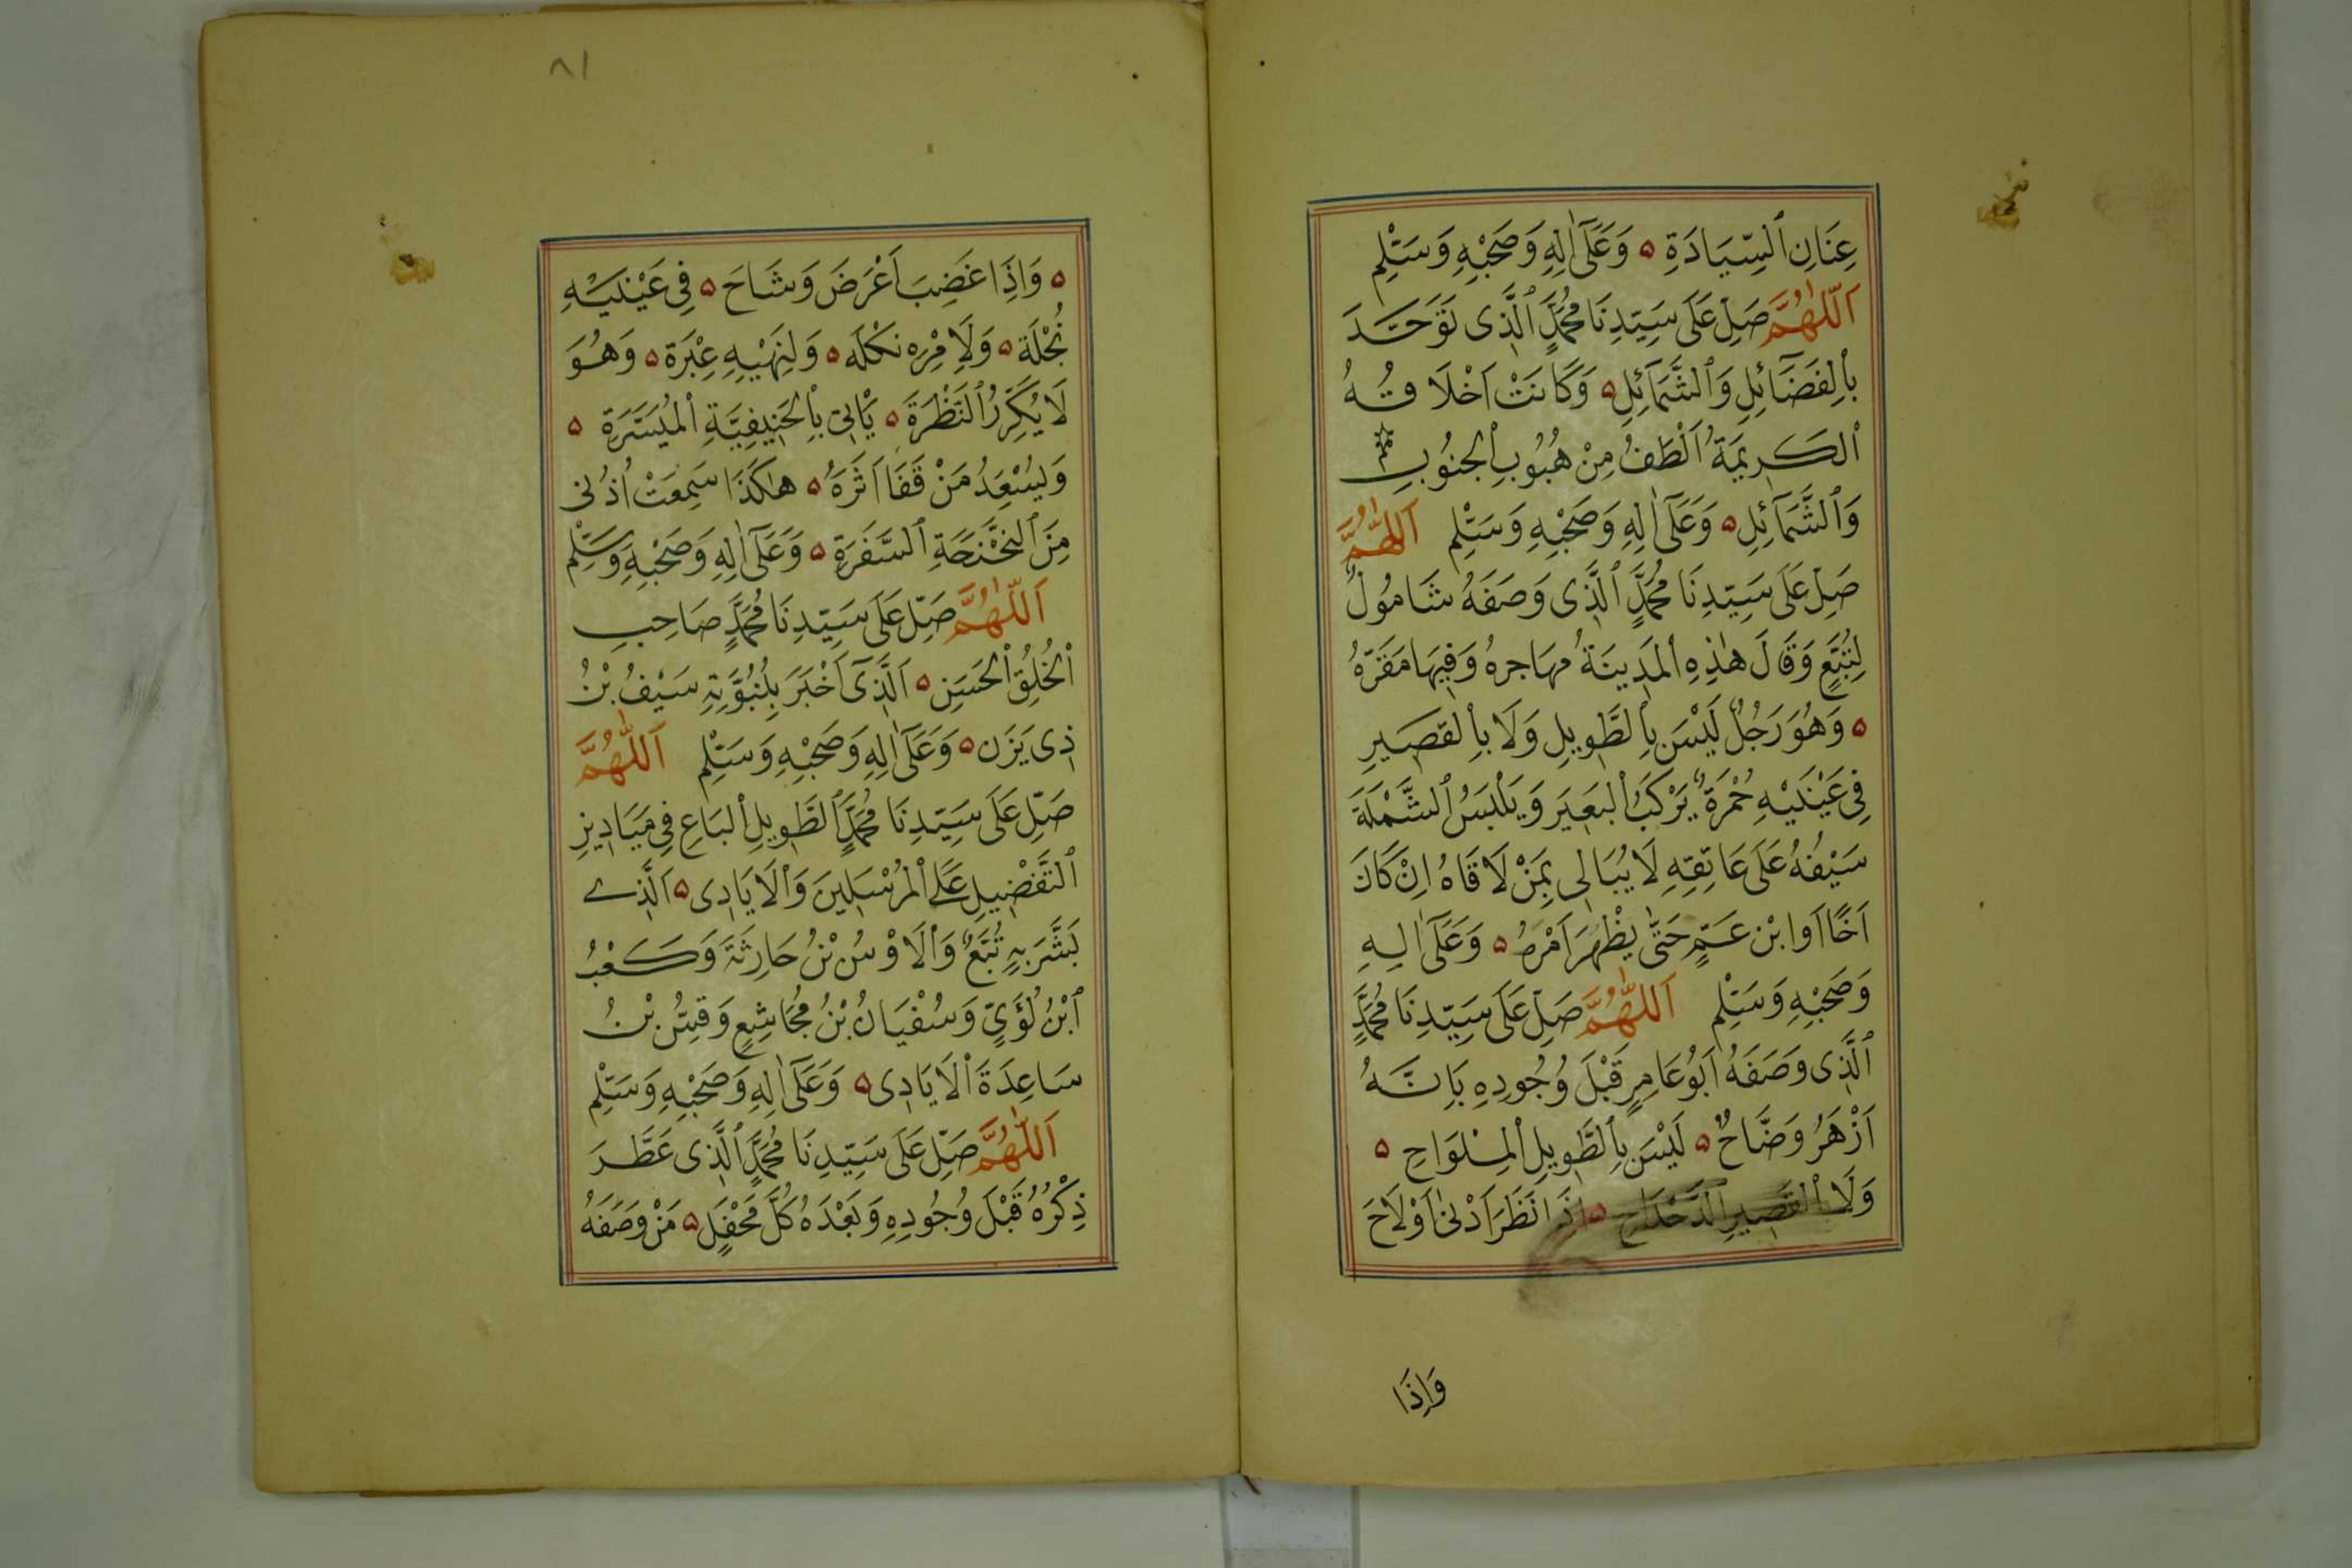 عِنَانِ ٱلسِّيَادَةِ ۵ وَعَلَىٰٓ اٰلِهِ وَصَحْبِهِ وَسَلِّمْ
اَللّٰهُمَّ صَلِّ عَلَى سَيِّدِنَا مُحَمَّدٍ ٱلَّذِى تَوَحَّدَ
بِٱلْفَضَآئِلِ وَٱلشَّمَآئِلِ ۵ وَكَانَتْ اَخْلَاقُهُ
ٱلْكَرِيمَةُ اَلْطَفُ مِنْ هُبُوبِ ٱلْجَنُوبِ
وَٱلشَّمَآئِلِ ۵ وَعَلَىٰٓ اٰلِهِ وَصَحْبِهِ وَسَلِّمْ اَللّٰهُمَّ
صَلِّ عَلَى سَيِّدِنَا مُحَمَّدٍ ٱلَّذِى وَصَفَهُ شَامُولٌ
لِتُبَّعٍ وَقَالَ هٰذِهِ ٱلْمَدِينَةُ مهَاجره وَفِيهَا مَقَرّهُ
۵ وَهُوَ رَجُلٌ لَيْسَ بِٱلطَّوِيلِ وَلَا بِٱلْقَصِيرِ
فِى عَيْنَيْهِ حُمْرَةٌ يَرْكَبُ ٱلْبَعِيرَ وَيَلْبَسُ ٱلشَّمْلَةَ
سَيْفُهُ عَلَى عَاتِقِهِ لَا يُبَالِى بِمَنْ لَاقَاهُ اِنْ كَانَ
اَخًا اَوِ ابْن عَمٍّ حَتَّى يَظْهَرَ اَمْرُهُ ۵ وَعَلَىٰٓ اٰلِهِ
وَصَحْبِهِ وَسَلِّمْ اَللّٰهُمَّ صَلِّ عَلَى سَيِّدِنَا مُحَمَّدٍ
ٱلَّذِى وَصَفَهُ اَبُوعَامِرٍ قَبْلَ وُجُودِهِ بِاَنَّهُ
اَزْهَرُ وَضَّاحٌ ۵ لَيْسَ بِٱلطَّوِيلِ ٱلْمِلْوَاحِ ۵
وَلَا بِٱلْقَصِيرِ ٱلدَّحْدَاحِ ۵ اِذَا نَظَرَ اَدْنٰى اَوْ لَاحَ
وَاِذَا
٨١
۵ وَاِذَا غَضِبَ اَعْرَضَ وَشَاحَ ۵ فِى عَيْنَيْهِ
نُجْلَة ۵ وَلَاِمْرِه نكْلَه ۵ وَلِنَهْيِهِ عِبْرَة ۵ وَهُوَ
لَا يُكَرِّرُ ٱلنَّظْرَةَ ۵ يَاْتِى بِٱلْحَنِيفِيَّةِ ٱلْمُيَسَّرَةِ ۵
وَيُسْعِدُ مَنْ قَفَا اَثَرَهُ ۵ هٰكَذَا سَمِعَتْ اُذُنى
مِنَ ٱلنَّحْنَحَةِ ٱلسَّفَرَةِ ۵ وَعَلَىٰٓ اٰلِهِ وَصَحْبِهِ وَسَلِّمْ
اَللّٰهُمَّ صَلِّ عَلَى سَيِّدِنَا مُحَمَّدٍ صَاحِبِ
ٱلْخُلُقِ ٱلْحَسَنِ ۵ اَلَّذِىٓ اَخْبَرَ بِنُبُوَّتِهِ سَيْفُ بْنُ
ذِى يَزَن ۵ وَعَلَىٰٓ اٰلِهِ وَصَحْبِهِ وَسَلِّمْ اَللّٰهُمَّ
صَلِّ عَلَى سَيِّدِنَا مُحَمَّدٍ ٱلطَّوِيلِ ٱلْبَاعِ فِى مَيَادِينِ
ٱلتَّفْضِيلِ عَلَى ٱلْمُرْسَلِينَ وَٱلْاَيَادِى ۵ اَلَّذِى
بَشَّرَ بِهِ تُبَّعٌ وَٱلْاَوْسُ بْنُ حَارِثَةَ وَكَعْبُ
ٱبْنُ لُؤَيٍّ وَسُفْيَانُ بْنُ مُجَاشِعٍ وَقسُّ بْنُ
سَاعِدَةَ ٱلْاَيَادِى ۵ وَعَلَىٰٓ اٰلِهِ وَصَحْبِهِ وَسَلِّمْ
اَللّٰهُمَّ صَلِّ عَلَى سَيِّدِنَا مُحَمَّدٍ ٱلَّذِى عَطَّرَ
ذِكْرُهُ قَبْلَ وُجُودِهِ وَبَعْدَهُ كُلَّ مَحْفَلٍ ۵ مَنْ وَصَفَهُ